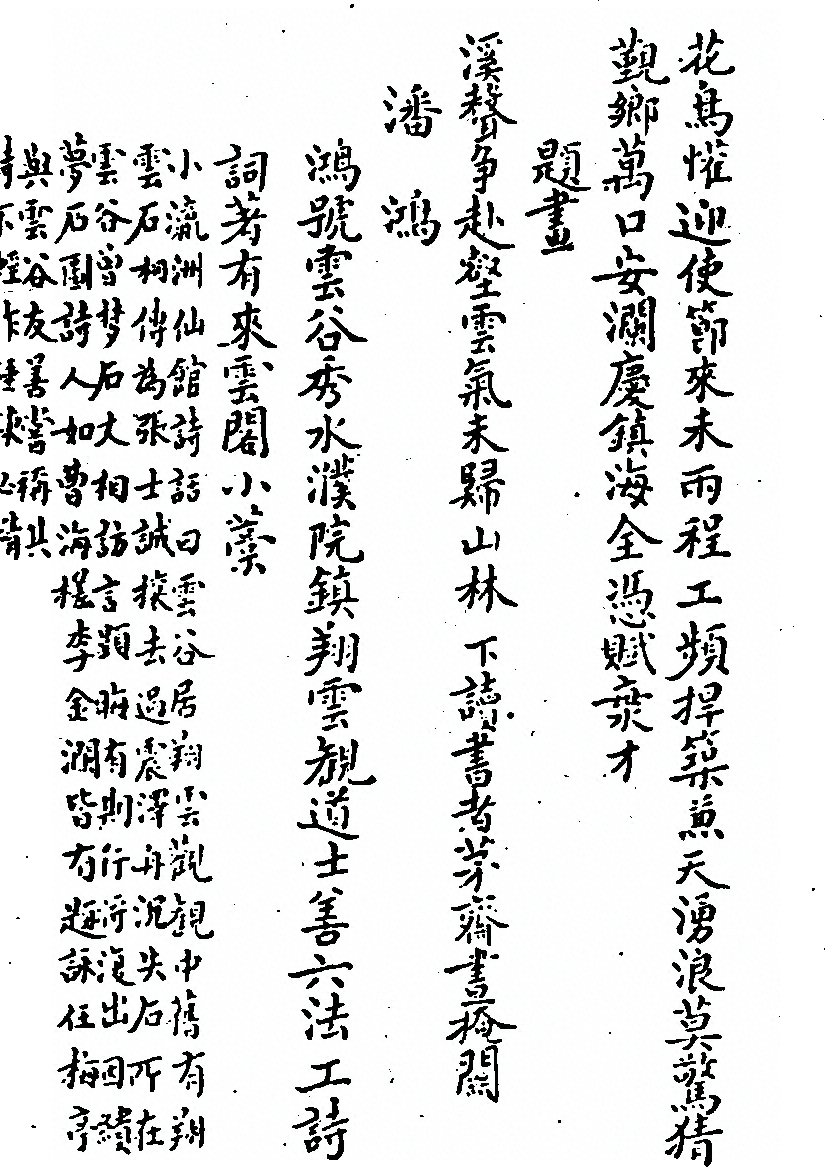 花鳥懽迎使節來未雨程工頻捍築兼天湧浪莫驚猜
覲鄉萬口安瀾慶鎮海全憑賦衆才
題畫
溪聲争赴壑雲氣未歸山林下讀書者茅齋晝掩關
潘鴻
鴻號雲谷秀水濮院鎮翔雲觀道士善六法工詩
詞著有來雲閣小藁
小瀛洲仙館詩話曰雲谷居翔雲觀觀中舊有翔
雲石相傳為張士誠移去過震澤舟沉失石所在
雲谷曾夢石丈相訪言顯晦有則行將復出因繪
夢石圖詩人如曹海槎李金瀾皆有題詠任梅亭
與雲谷友善嘗稱其
詩不輕作